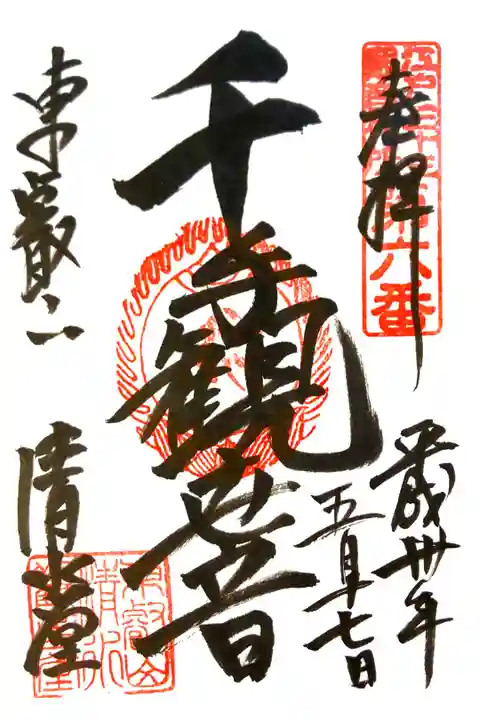 奉拝
第六番
平成卅年
五月十七日
千手観世音
東叡山
清水堂
東叡山
清水